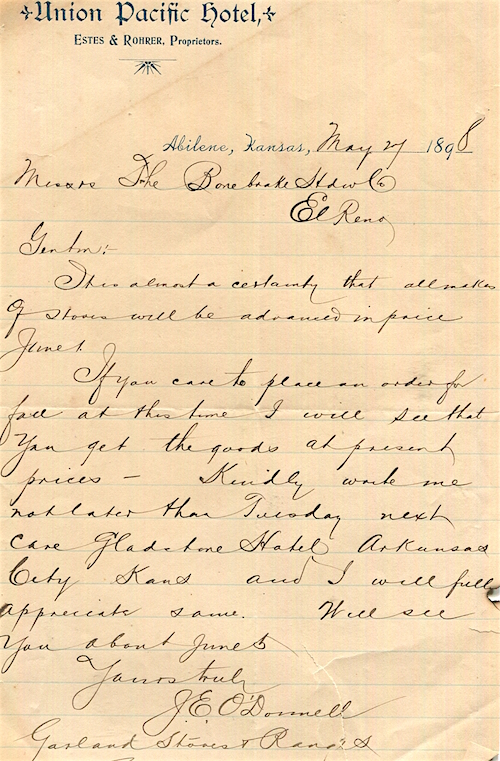 Union Pacific Hotel,
ESTES & ROHRER, Proprietors.
Abilene, Kansas, May 27 1898
Messrs The Bonebrake Hdw Co
El Reno
Gentm:-
It is almost a certainty that all makes
of stoves will be advanced in price
June 1.
If you care to place an order for
fall at this time I will see that
you get the goods at present
prices - Kindly write me
not later than Tuesday next
care Gladstone Hotel Arkansas
City Kans and I will fully
appreciate same. Will see
you about June 5
Yours truly
J.E. O'Donnell
Garland Stoves & Ranges